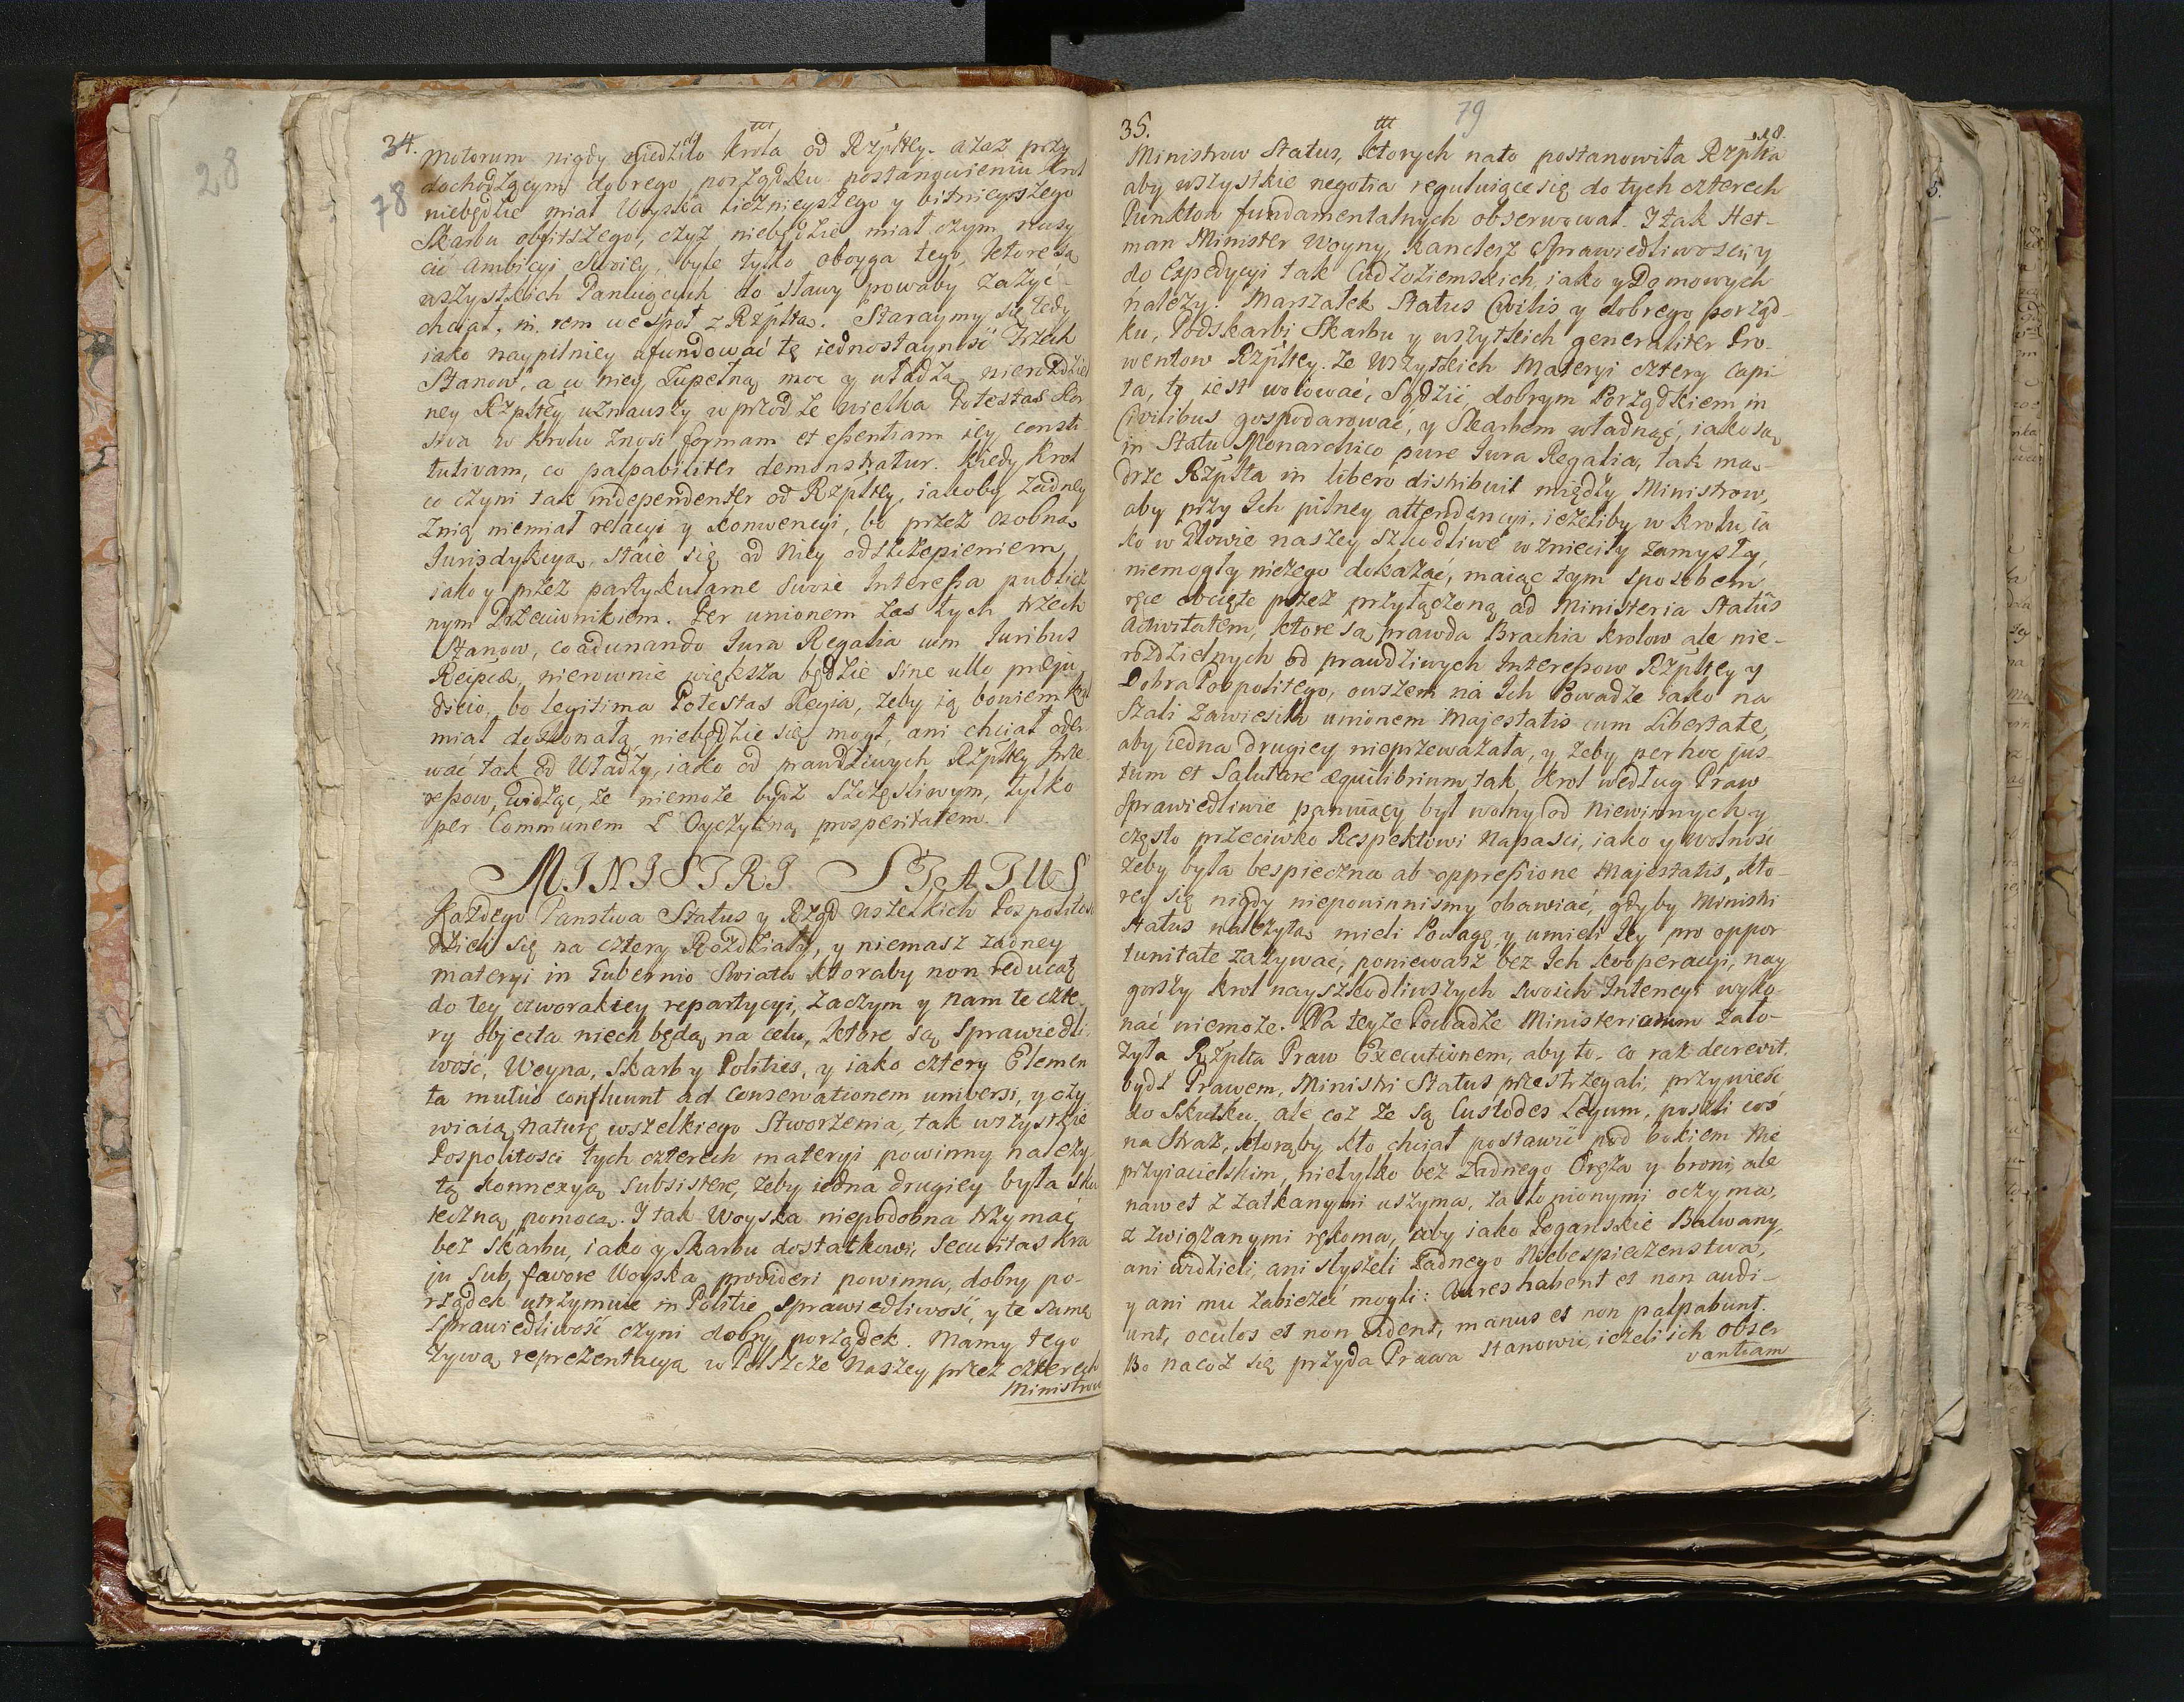 28
34.
78
motorum nigdy niedzilito Krola od Rzpltey. a zaz przy
dochodzącym dobrego porządku postanowieniu Krol
niebędzie miał Woyska licznieyszego y bitnieyszego
Skarbu obfitszego, czyż niebędzie miał czym nasy
cić ambicyi Swoiey, byle tylko oboyga tego, ktore są
wszystkich Panuiących do sławy powaby zażyć
chciał, in rem wespoł z Rzpltą. Staraymy się tedy
iako naypilniey ufundować tę iednostayność Trzech
Stanow, a w niey Zupełną moc y władzą nierozdziel
ney Rzpltey uznawszy wprzod że wielka Potestas
w Krolu znosi formam et essentiam iey consti
tutivam, co palpabiliter demonstratur. Kiedy Krol
co czyni tak independenter od Rzpltey, iakoby żadney
Znią niemiał relacyi y konwencyi, bo przez osobną
Jurisdykcyą, staie się od Niey odszczepieniem,
iako y przez partykularne Swoie Interessa publicz
nym Przeciwnikiem. Per unionem zas tych trzech
Stanow, coadunando Jura Regalia cum Juribus
Reipcæ, nierownie większa będzie sine ullo præju
dicio, bo legitima Potestas Regia, żeby ią bowiem Krol
miał doskonałą niebędzie się mogł, ani chciał oder
wać tak od Władzy, iako od prawdziwych Rzpltey Inte
ressow, widząc, że niemoże bydż szczęsliwym, tylko
per Communem z Oyczyzną prosperitatem.
MINISTRI STATUS
Każdego Panstwa Status y Rząd wszelkich Pospolitos
dzieli się na cztery Rozdziały, y niemasz żadney
materyi in Gubernio Swiata ktoraby non reducat
do tey czworakiey repartycyi, zaczym y nam te czte
ry objecta niech będą na celu, ktore są Sprawiedli
wość, Woyna, Skarb y Polities, y iako cztery Elemen
ta mutuò confluunt ad Conservationem universi, y oży
wiaią naturę wszelkiego Stworzenia, tak wszystkie
Pospolitosci tych czterech materyi powinny należy
tą konnexyą subsistere, żeby iedna drugiey była sku
teczną pomocą. I tak Woyska niepodobna trzymać
bez Skarbu, iako y Skarbu dostatkowi, Securitas Kra
ju sub favore Woyska provideri powinna, dobry po-
rządek utrzymuie in Politie Sprawiedliwość, y te same
Sprawiedliwość czyni dobry porządek. Mamy tego
żywą reprezentacyą w Polszcze Naszey przez czterech
Ministrow
35.
79
18.
Ministrow Status, ktorych nato postanowiła Rzplta
aby wszystkie negotia reguluiące się do tych czterech
Punktow fundamentalnych obserwował. I tak Het-
man Minister Woyny, Kanclerz Sprawiedliwosci, y
do Expedycyi tak Cudzoziemskich, iako y Domowych
należy. Marszałek Status Civilis y dobrego porząd-
ku, Podskarbi Skarbu y wszystkich generaliter Pro-
wentow Rzpltey. Ze Wszystkich Materyi cztery Capi
ta, to iest wołować, Sądzić, dobrym Porządkiem in
Civilibus gospodarować, y Skarbem władnąć, iako są
in Statu Monarchico pure Jura Regalia, tak mą-
drze Rzplta in libero distribuit między Ministrow,
aby przy Ich pilney attendencyi, ieżeliby w Krolu, ia
ko w Głowie naszey szkodliwe wznieciły zamysły,
niemogły niczego dokazać, maiąc tym sposobem
ręce ocięte przez przyłączoną ad Ministeria Statûs
Activitatem, ktore są prawda Brachia Krolow ale nie-
rozdzielnych od prawdziwych Interessow Rzpltey y
Dobra Pospolitego, owszem na Ich Powadze iako na
Szali zawiesiła unionem Majestatis cum Libertate,
aby iedna drugiey nieprzeważała, y żeby per hoc jus-
tum et Salutare æquilibrium, tak Krol według Praw
Sprawiedliwie panuiący był wolny od niewinnych y
często przeciwko Respektowi Napasci, iako y Wolność
żeby była bespieczna ab oppressione Majestatis, kto-
rey się nigdy niepowinnismy obawiać, gdyby Ministri
Status należytą mieli Powagę, y umieli Jey pro oppor
tunitate zażywać, poniewasz bez Ich kooperacyi, nay
gorszy Krol nayszkodliwszych swoich Intencyi wyko-
nać niemoże. Na teyże Powadze Ministeriorum zało-
żyła Rzplta Praw Executionem, aby to, co raz decrevit,
bydź Prawem, Ministri Status przestrzegali, przywieść
do Skutku, ale coż że są Custodes Legum, poszli coś
na Straż, ktorąby kto chciał postawić pod bokiem Nie
przyiacielskim, nietylko bez żadnego Oręża y broni, ale
nawet z zatkanymi uszyma, zasłonionymi oczyma,
z związanymi rękoma, aby iako Poganskie Balwany,
ani widzieli, ani słyszeli żadnego Niebespieczenstwa,
y ani mu zabieżeć mogli: Aures habent et non audi-
unt, oculos et non vident, manus et non palpabunt.
Bo nacoż się przyda Prawa stanowić, ieżeli ich obser
vantiam
5.